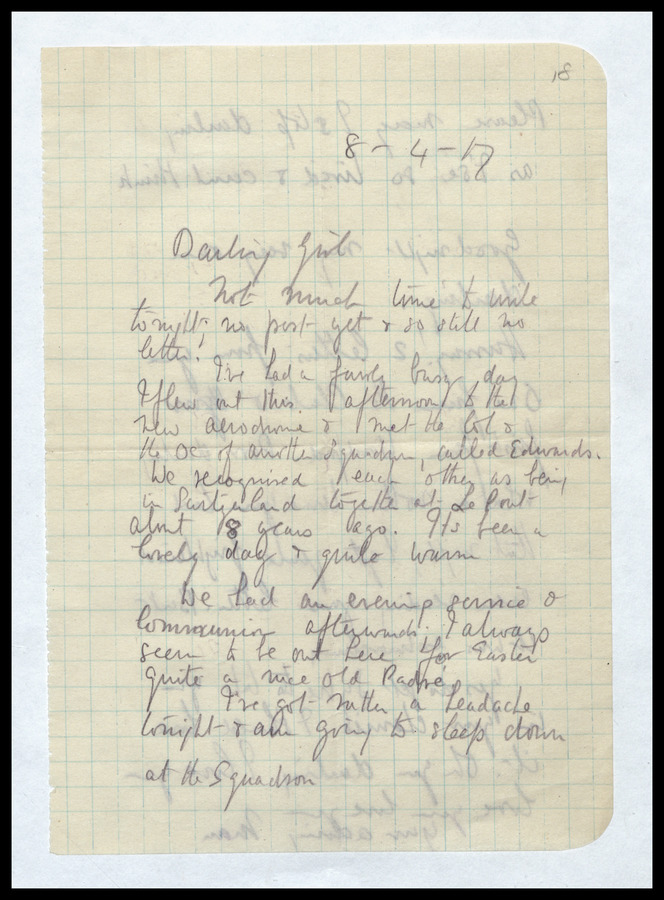 18
8 - 4 - 17
Darling Girl
Not much time to write
tonight; no post yet & so still no
letter!
I've had a fairly busy day
I flew out this afternoon to the
new aerodrome & met the Col &
the OC of another Squadron, called Edwards.
We recognised each other as being
in Switzerland together at Le Pont
about 8 years ago. It's been a
lovely day & quite warm
We had an evening service &
Communion afterwards. I always
seem to be out here for Easter
quite a nice old Padre.
I've got rather a headache
tonight & am going to sleep down
at the Squadron